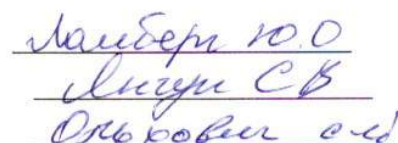 Ламберт Ю.О
Янгун СВ
Ольхович